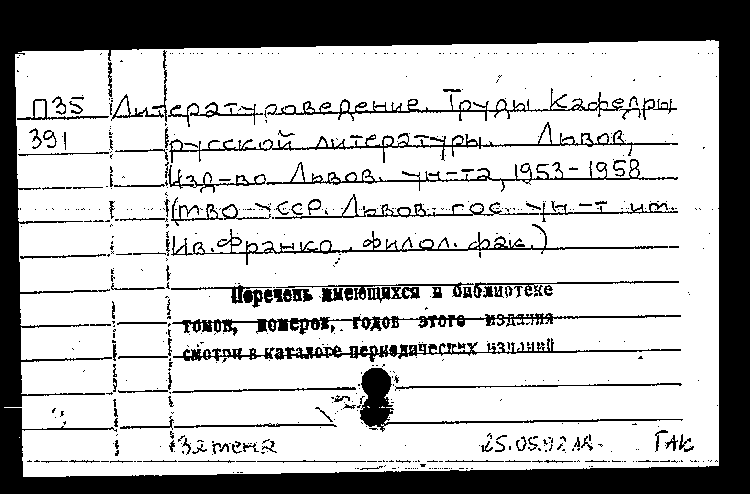 П35 Литературоведение. Труды Кафедры
391 русской литературы. Львов,
Изд-во Львов. ун-та, 1953-1958
(МВО УССР. Львов. гос. ун-т им.
Ив. Франко, филол. фак.)
Перечень имеющихся в библиотеке
томов, номеров, годов этого издания
смотри в каталоге периодических изданий
Замена 25.05.92 ГАК